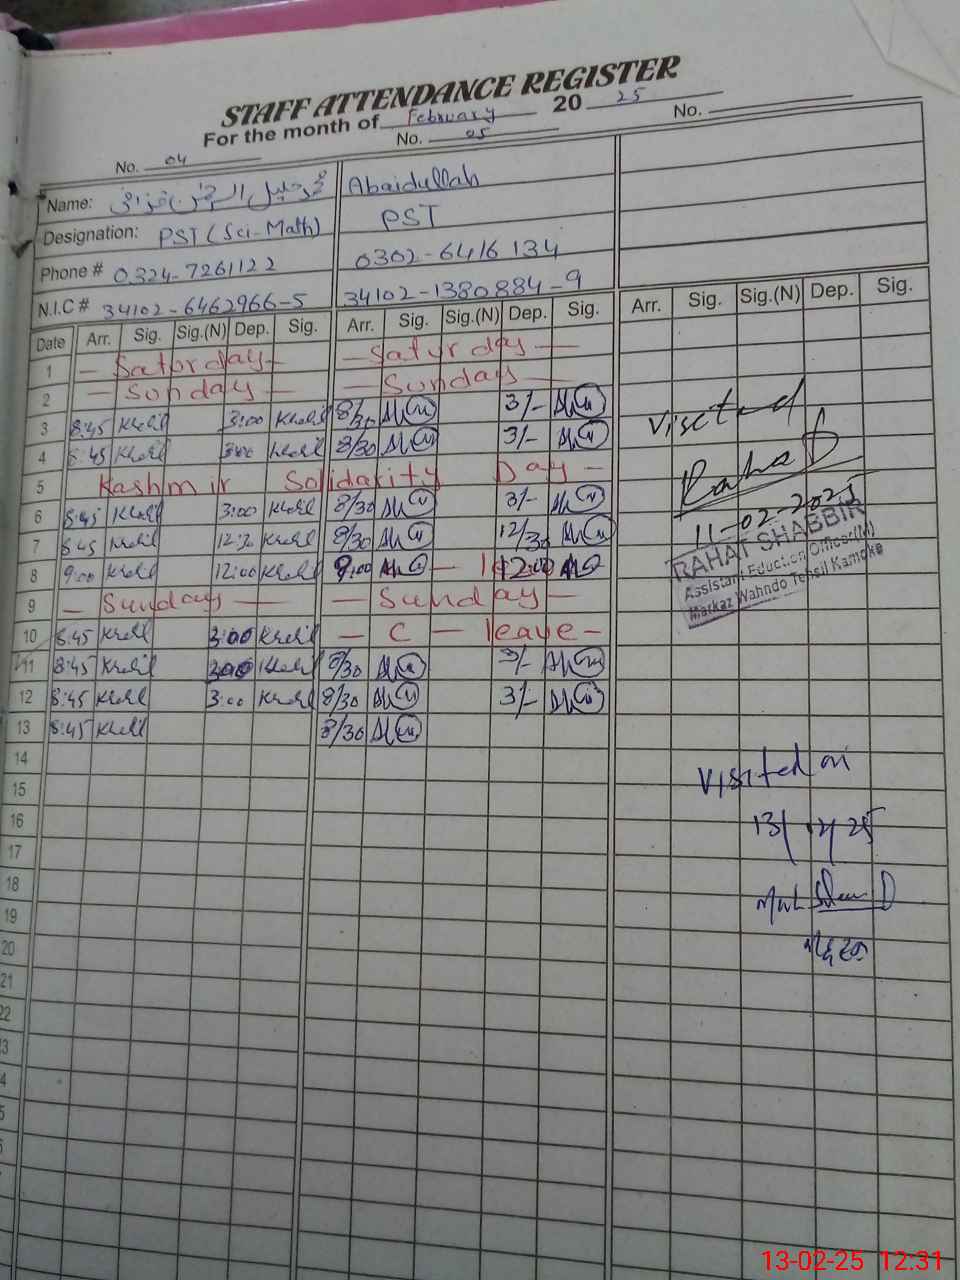 STAFF ATTENDANCE REGISTER
For the month of February 2025
No. 04 No. 05 No.
Name: Abaidullah
Designation: PST (Sci-Math) PST
Phone # 0324-7261122 0302-6416134
N.I.C # 34102-6462966-5 34102-1380884-9
Date Arr. Sig. Sig.(N) Dep. Sig. Arr. Sig. Sig.(N) Dep. Sig. Arr. Sig. Sig.(N) Dep. Sig.
1 - Saturday - - Saturday -
2 - Sunday - - Sunday -
3 8:45 Khalil 3:00 Khalil 8/30 3/-
4 8:45 Khalil 3:00 Khalil 8/30 3/-
5 Kashmir Solidarity Day -
6 8:45 Khalil 3:00 Khalil 8/30 3/-
7 8:45 Khalil 12:30 Khalil 8/30 12/30
8 9:00 Khalil 12:00 Khalil 9:00 12:00
9 - Sunday - - Sunday -
10 8:45 Khalil 3:00 Khalil - C - leave -
11 8:45 Khalil 3:00 Khalil 8/30 3/-
12 8:45 Khalil 3:00 Khalil 8/30 3/-
13 8:45 Khalil 8/30
14
15
16
17
18
19
20
21
22
Visited
11-02-2025
RAHAT SHABBIR
Assistant Eduction Officer(M)
Markaz Wahndo Tehsil Kamoke
Visited on
13/02/25
13-02-25 12:31